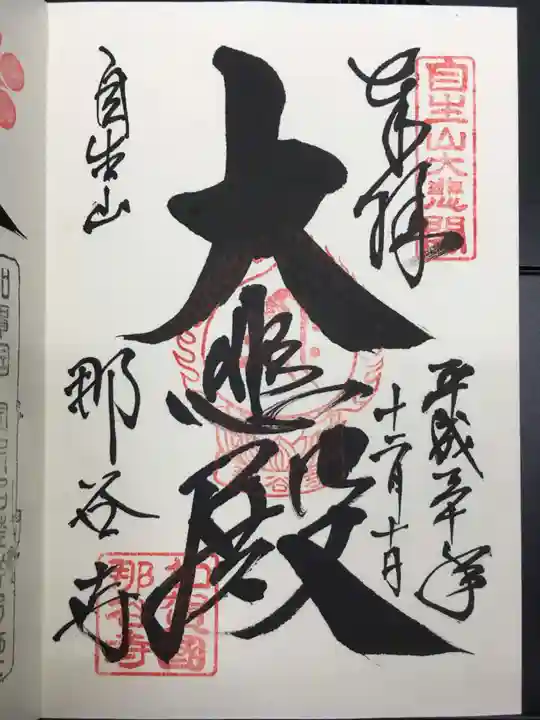 奉拝
自生山大悲閣
平成三十年
十二月十日
大悲殿
自生山
那谷寺
加賀國
那谷寺